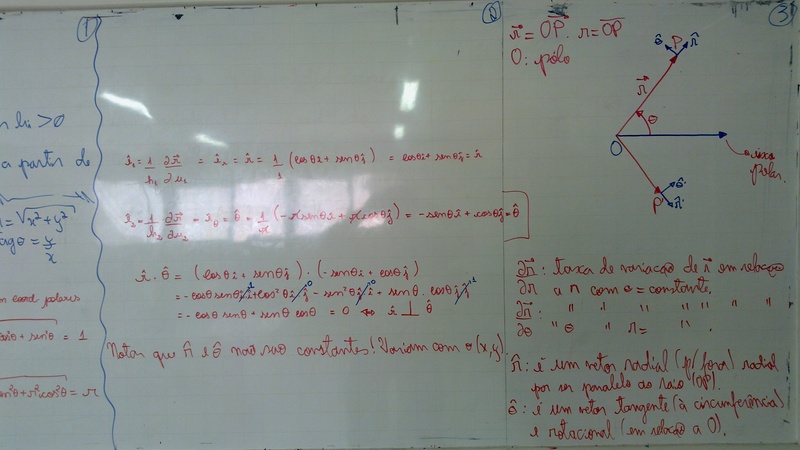 ①
li > 0
a partir de
= √(x² + y²)
tag θ = y/x
coord polares
cos²θ + sen²θ = 1
sen²θ + r² cos²θ = r
②
ê₁ = 1/h₁ ∂r⃗/∂u₁ = ê₁ = r̂ = 1/1 (cosθ î + senθ ĵ) = cosθ î + senθ ĵ = r̂
ê₂ = 1/h₂ ∂r⃗/∂u₂ = ê_θ = θ̂ = 1/r (-r senθ î + r cosθ ĵ) = -senθ î + cosθ ĵ = θ̂
r̂ · θ̂ = (cosθ î + senθ ĵ) · (-senθ î + cosθ ĵ)
= -cosθ senθ î·î¹ + cos²θ î·ĵ⁰ - sen²θ ĵ·î⁰ + senθ · cosθ ĵ·ĵ¹
= -cosθ senθ + senθ cosθ = 0 ⇔ r̂ ⊥ θ̂
Notar que r̂ e θ̂ não são constantes! Variam com (x,y)
③
r⃗ = OP⃗. r = OP
O: pólo
θ̂ P r̂
r⃗
θ
O
eixo
polar.
θ̂'
P' r̂'
∂r⃗ : taxa de variação de r⃗ em relação
∂r a r com θ = constante.
∂r⃗ : " " " " " "
∂θ " θ " r = " .
r̂ : é um vetor radial (p/ fora) radial
por ser paralelo ao raio (OP).
θ̂ : é um vetor tangente (à circunferência)
e rotacional (em relação a O).